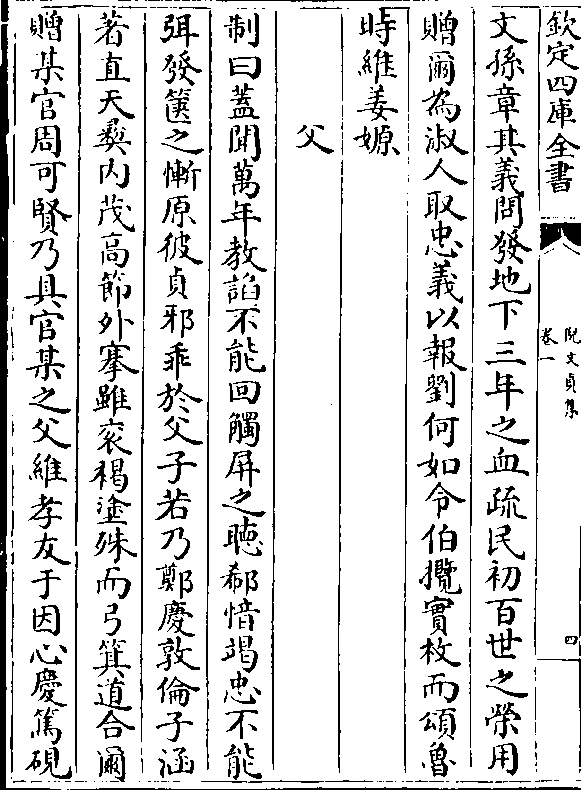 欽定四庫全書
倪文貞集
卷一
四
文孫章其義問發地下三年之血疏民初百世之榮用
贈爾為淑人取忠義以報劉何如令伯攬實枚而頌魯
時維姜嫄
父
制曰蓋聞萬年教諂不能回觸屏之聴郗愔竭忠不能
弭發篋之慚原彼貞邪乖於父子若乃鄭慶敦倫子涵
著直天彜内茂高節外搴雖衮褐塗殊而弓箕道合爾
贈某官周可賢乃具官某之父維孝友于因心慶篤硯